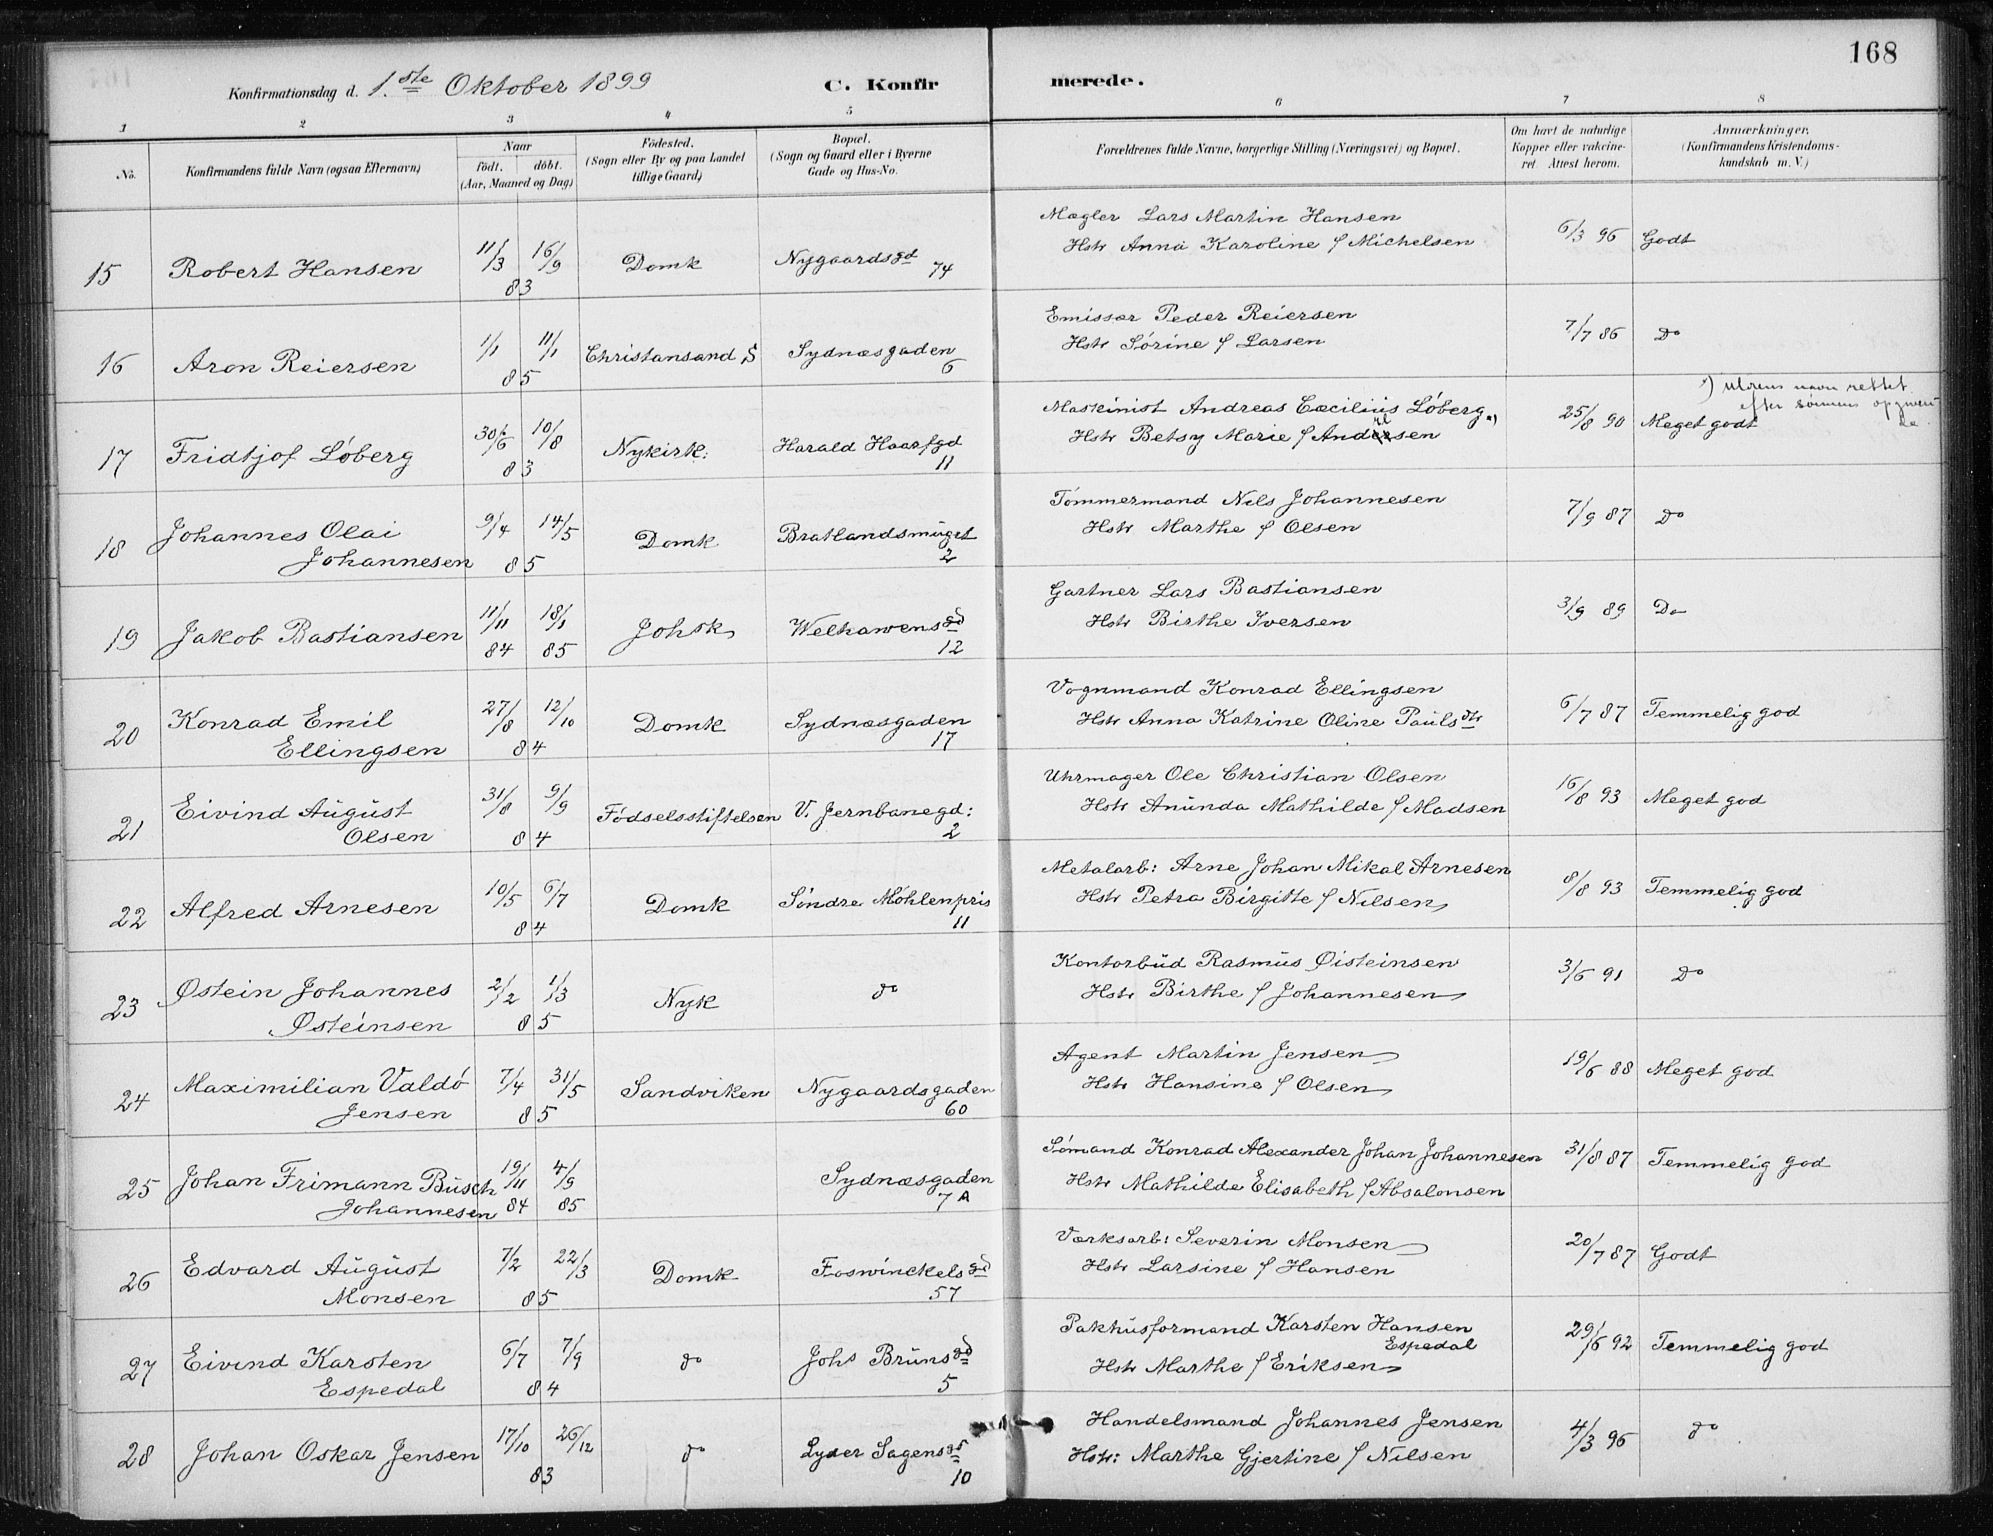 168
Konfirmationsdag d. 1.ste Oktober 1899 C. Konfirmerede.
1 2 3 4 5 6 7 8
No. Konfirmandens fulde Navn (ogsaa Efternavn) Naar født. døbt. (Aar, Maaned og Dag) Fødested. (Sogn eller By og paa Landet tillige Gaard) Bopæl. (Sogn og Gaard eller i Byerne Gade og Hus-No. Forældrenes fulde Navne, borgerlige Stilling (Næringsvei) og Bopæl. Om havt de naturlige Kopper eller vakcineret. Attest herom. Anmærkninger. (Konfirmandens Kristendomskundskab m. V.)
Mægler Lars Martin Hansen
15 Robert Hansen 11/3 16/9 83 Domk Nygaardsgd 74 Hstr Anna Karoline f Michelsen 6/3 96 Godt
Emissær Peder Reiersen
16 Aron Reiersen 1/1 11/1 85 Christansand S Sydnæsgaden 6 Hstr Sørine f Larsen 7/7 86 Do
Maskinist Andreas Cæcilius Løberg *)
17 Fridtjof Løberg 30/6 10/8 83 Nykirk: Harald Haarfgd 11 Hstr Betsy Marie f Andersen 25/8 90 Meget godt
*) Morens navn rettet
efter sønnens opgivende
Tømmermand Nils Johannesen
18 Johannes Olai
Johannesen 9/4 14/5 85 Domk Bratlandsmuget 2 Hstr Marthe f Olsen 7/9 87 Do
Gartner Lars Bastiansen
19 Jakob Bastiansen 11/11 84 18/1 85 Johsk Welhavensgd 12 Hstr Birthe Iversen 3/9 89 Do
Vognmand Konrad Ellingsen
20 Konrad Emil
Ellingsen 27/8 12/10 84 Domk Sydnæsgaden 17 Hstr Anna Katrine Oline Paulsdtr 6/7 87 Temmelig god
Uhrmager Ole Christian Olsen
21 Eivind August
Olsen 31/8 9/9 84 Fødselsstiftelsen V. Jernbanegd: 2 Hstr Anunda Mathilde f Madsen 16/8 93 Meget god
Metalarb: Arne Johan Mikal Arnesen
22 Alfred Arnesen 10/5 6/7 84 Domk Søndre Møhlenpris 11 Hstr Petra Birgitte f Nilsen 8/8 93 Temmelig god
Kontorbud Rasmus Øisteinsen
23 Østein Johannes
Østeinsen 2/2 1/3 85 Nyk do Hstr Birthe f Johannesen 3/6 91 Do
Agent Martin Jensen
24 Maximilian Valdø
Jensen 7/4 31/5 85 Sandviken Nygaardsgaden 60 Hstr Hansine f Olsen 19/6 88 Meget god
Sømand Konrad Alexander Johan Johannesen
25 Johan Frimann Busch
Johannesen 19/11 84 4/9 85 Sydnæsgaden 7 A Hstr Mathilde Elisabeth f Absalonsen 31/8 87 Temmelig god
Værksarb: Severin Monsen
26 Edvard August
Monsen 7/2 22/3 85 Domk Foswinckelsgd 57 Hstr Larsine f Hansen 20/7 87 Godt
Pakhusformand Karsten Hansen Espedal
27 Eivind Karsten
Espedal 6/7 7/9 84 do Johs Brunsgd 5 Hstr Marthe f Eriksen 29/6 92 Temmelig god
Handelsmand Johannes Jensen
28 Johan Oskar Jensen 17/10 26/12 83 do Lyder Sagensgd 10 Hstr: Marthe Gjertine f Nilsen 4/3 96 do